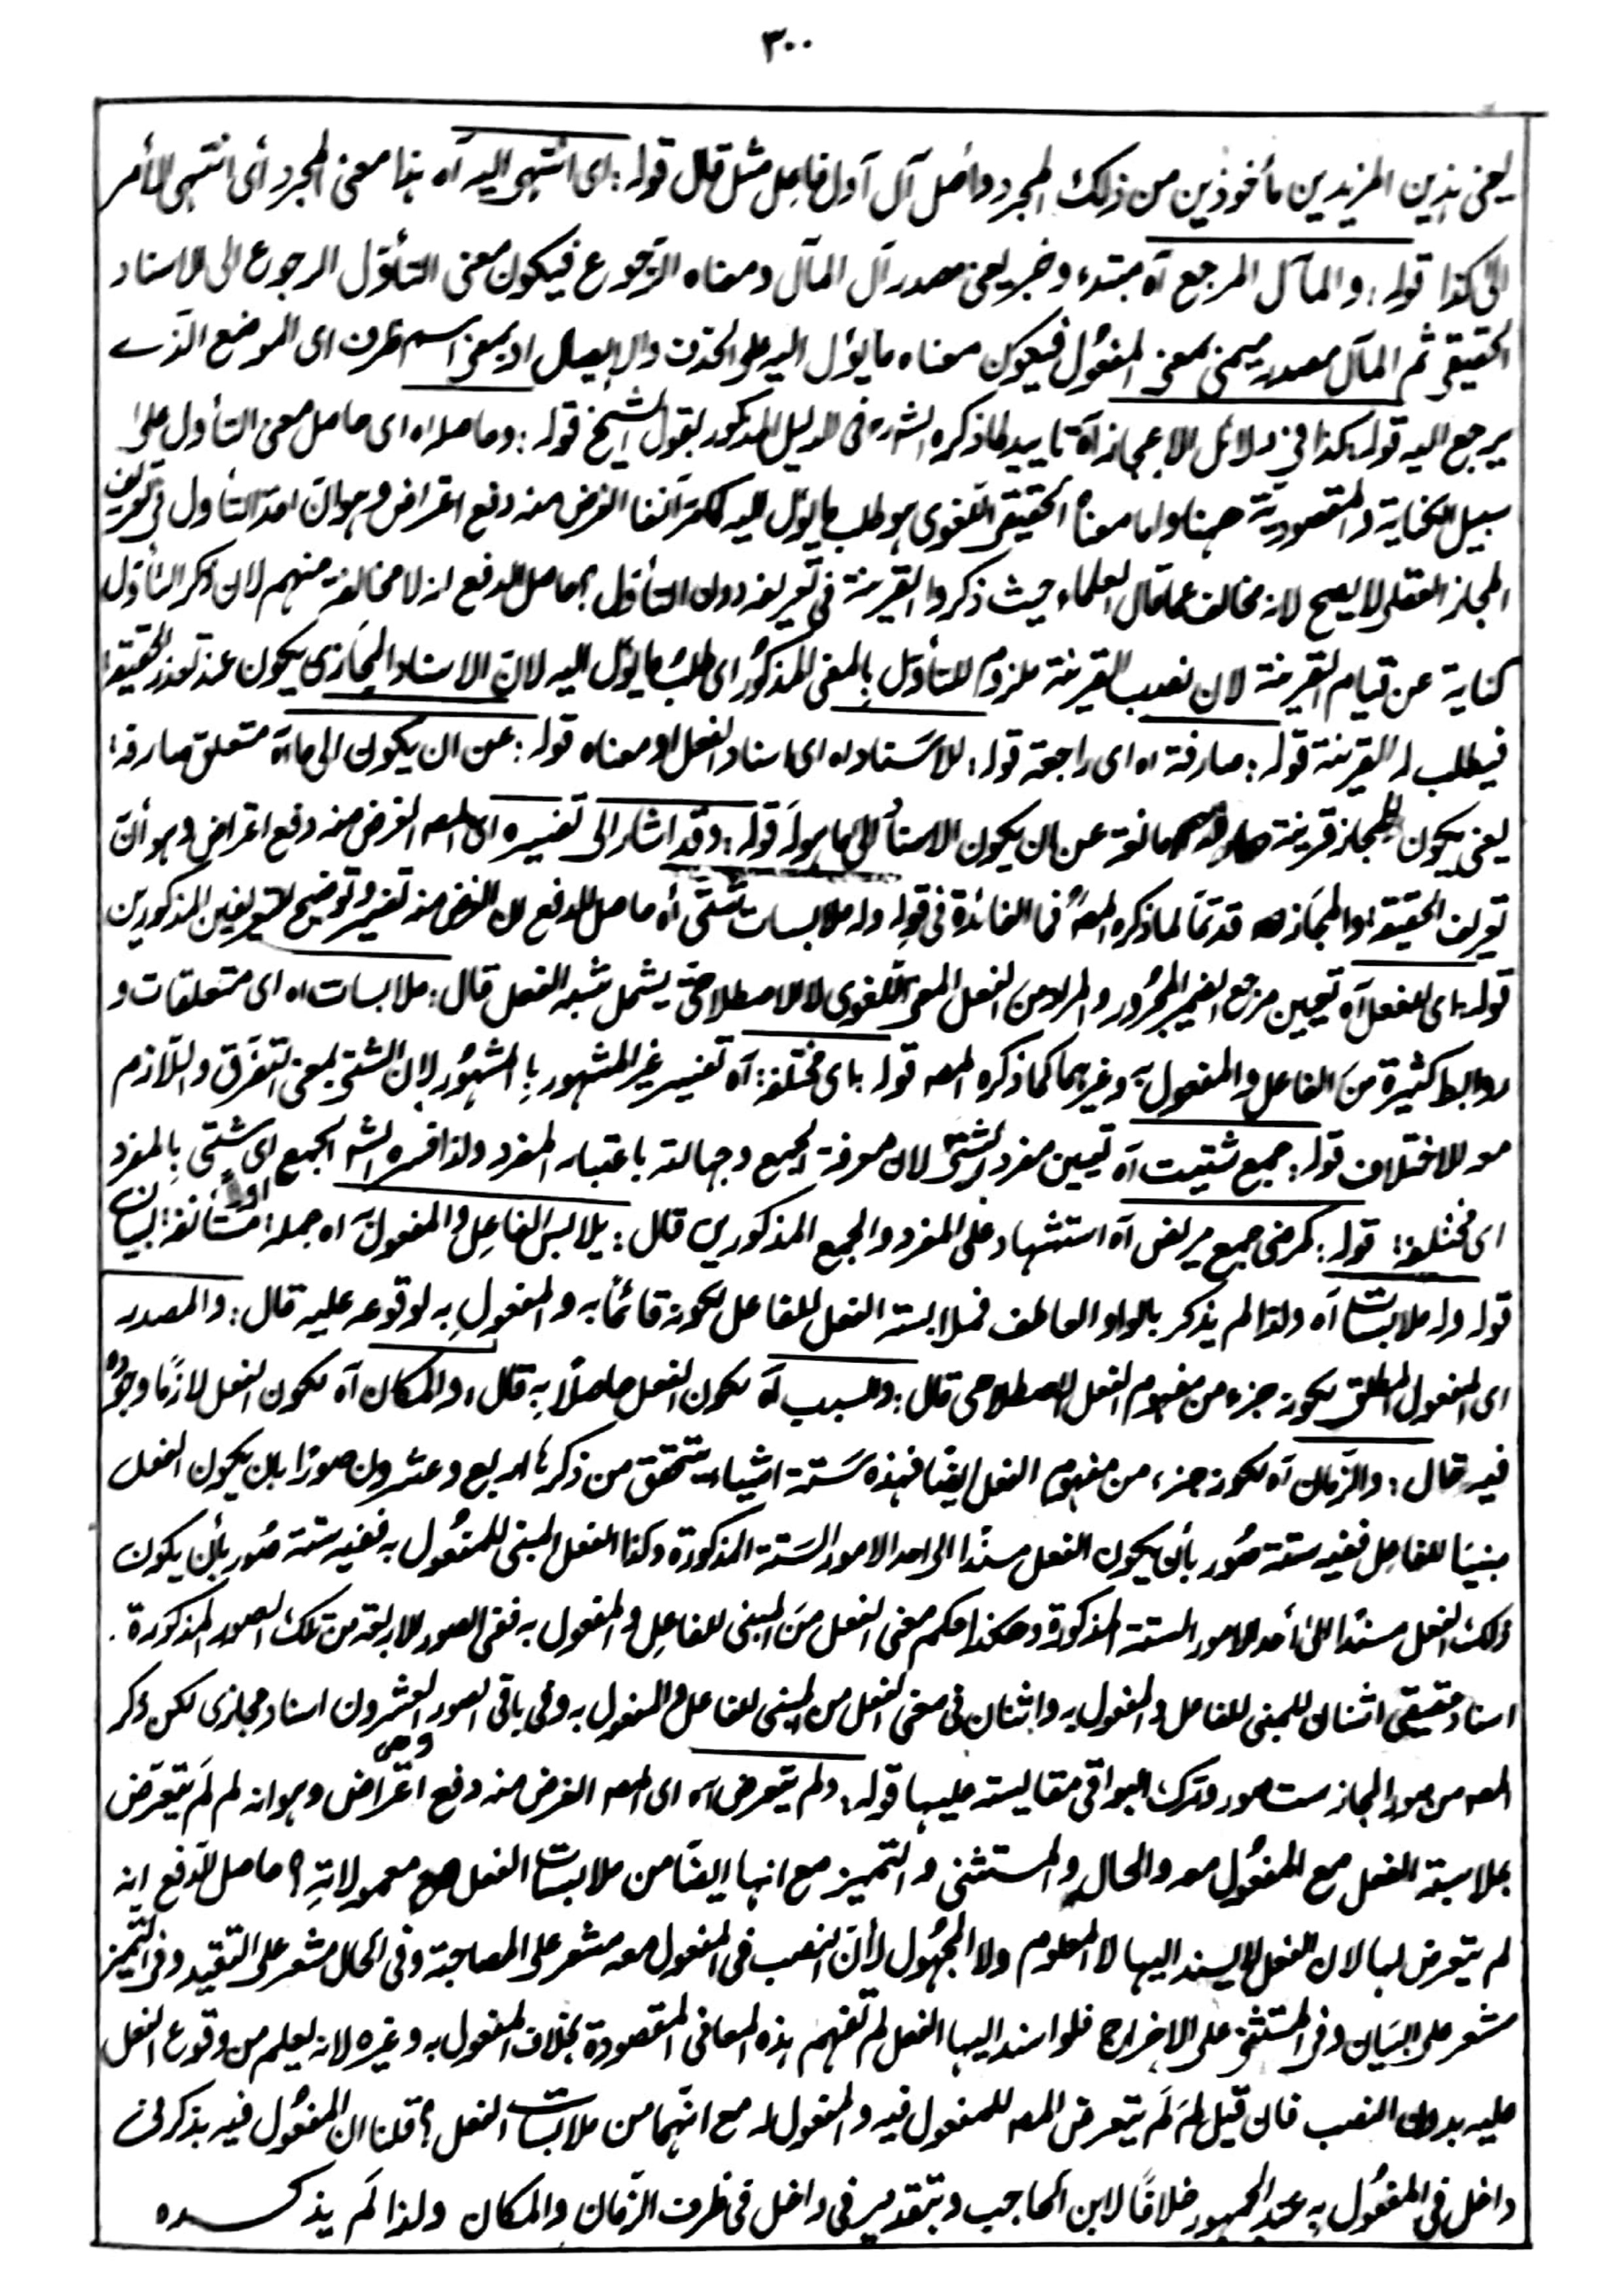 ٣٠٠
يعنى هذين المزيدين مأخوذين من ذلك المجرد وأصل آل آول فاعل مثل قال قوله: اى انتهى اليه آه هذا معنى المجرد أى انتهى الأمر
الى كذا قوله: والمآل المرجع آه مبتدء وخبر يعنى مصدر آل المآل ومعناه الرّجوع فيكون معنى التأوّل الرجوع الى الاسناد
الحقيقى ثم المآل مصدر ميمىّ بمعنى المفعُول فيكون معناه ما يؤل اليه على الحذف والايصال او بمعنى اسم ظرف اى الموضع الذے
يرجع اليه قوله: كذا فى دلائل الاعجاز آه تاييد لما ذكره الشارح فى الدليل المذكور بقول الشيخ قوله: وحاصله اه اى حاصل معنى التأول على
سبيل الكناية والمقصوديّة ههنا واما معناه الحقيقى اللّغوى هو طلب ما يؤل اليه كما مرّ آنفا الغرض منه دفع اعتراض وهو انّ اخذ التأول فى تعريف
المجاز العقلى لا يصح لانه مخالف عما قال العلماء حيث ذكروا القرينة فى تعريفه دون التأوّل؟ حاصل الدفع انه لا مخالفة منهم لان ذكر التأوّل
كناية عن قيام القرينة لان نصب القرينة ملزوم للتأوّل بالمعنى المذكوُر اى طلبُ ما يؤل اليه لانّ الاسناد المجَازى يكون عند تعذر الحقيقة
فيطلب له القرينة قوله: صارفة اه اى راجعة قوله: للاسَناد اه اى اسناد الفعل او معناه قوله: عن ان يكون الى ما آه متعلق صارفة
يعنى يكون للمجاز قرينة صارفه مانعة عن ان يكون الاسنادُ الى ما هو له قوله: وقد اشار الى تفسيره اى المصه الغرض منه دفع اعتراض وهو أنّ
تعريف الحقيقة والمجَاز قد تمّا لما ذكره المصهُ فما الفائدة فى قوله وله ملابسات شتّى أه حاصل الدفع ان الغرض منه تفسير وتوضيح التعريفين المذكورين
قوله: اى للفعل آه تعيين مرجع الضمير المجرُور والمراد من الفعل المعنى اللّغوى لا الاصطلاحىّ يشمل شبه الفعل قال: ملابسات اه اى متعلقات و
روابط كثيرة منَ الفاعل والمفعول به وغيرهما كما ذكره المصه قوله: اى مختلفة: آه تفسير غير المشهور بالمشهُور لان الشتّى بمعنى التفرّق واللّازم
هو الاختلاف قوله: جمع شتيت آه تعيين مفرد الشتّى لان معرفة الجمع وجهالته باعتبار المفرد ولذا فسره الشه الجمع اى شتى بالمفرد
اى مختلفة: قوله: كمرضى جمع مريض آه استشهاد على المفرد والجمع المذكورين قال: يلابس الفاعل والمفعول آه جملة مُستأنفة: لبيان
قوله وله ملابسات آه ولذا لم يذكر بالواو العاطف فملابسة الفعل للفاعل لكونه قائمًا به والمفعول به لوقوعه عليه قال: والمصدر
اى المفعول المطلق لكونه جزء من مفهوم الفعل الاصطلاحى قال: والسبب آه لكون الفعل حاصلًا به قال: والمكان آه لكون الفعل لازمًا وجُوده
فيه قال: والزّمان آه لكونه جزء من مفهوم الفعل ايضًا فهذه ستّة اشياء يتحقق من ذكرها اربع وعشرون صورًا بان يكون الفعل
مبنيًا للفاعل ففيه ستة صُور بأن يكون الفعل مسندًا الى احد الامور السَتة المذكورة وكذا الفعل المبنى للمفعُول به ففيه ستة صُور بأن يكون
ذلك الفعل مسندًا الى أحد الامور الستة المذكورة وهكذا حكم معنى الفعل منَ المبنى للفاعل والمفعول به ففى الصور الاربعة من تلك الصور المذكورة.
اسناد حقيقى اثنان للمبنى للفاعل والمفعول به واثنان فى معنى الفعل من المبنى للفاعل والمفعول به وفى باقى الصور العشرون اسناد مجازى لكن ذكر
المصه من صور المجاز ست صور وترك البواقى مقايسة عليها قوله: ولم يتعرض آه اى المصه الغرض منه دفع اعتراض وهو انه لم لَم يتعرّض
بملابسة الفعل مع المفعُول معه والحال والمستثنى والتّميز مع انها ايضًا من ملابسات الفعل مع معمولاته؟ حاصل الدّفع انه
لم يتعرض لها لان الفعل لا يسند اليها لا المعلوم ولا المجهُول لأنّ النصب فى المفعول معه مشعر على المصاحبة وفى الحال مشعر على التقييد وفى التّميز
مشعر على البيَان وفى المستثنى على الاخراج فلو اسند اليها الفعل لم تفهم هذه المعانى المقصودة بخلاف المفعول به وغيره لانه يعلم من وقوع الفعل
عليه بدون النصب فان قيل لم لَم يتعرض المصه للمفعول فيه والمفعول له مع انّهما من ملابسات الفعل؟ قلنا ان المفعُول فيه بذكر فى
داخل فى المفعُول به عند الجمهور خلافًا لابن الحاجب وبتقدير فى داخل فى ظرف الزّمان والمكان ولذا لَم يذكره